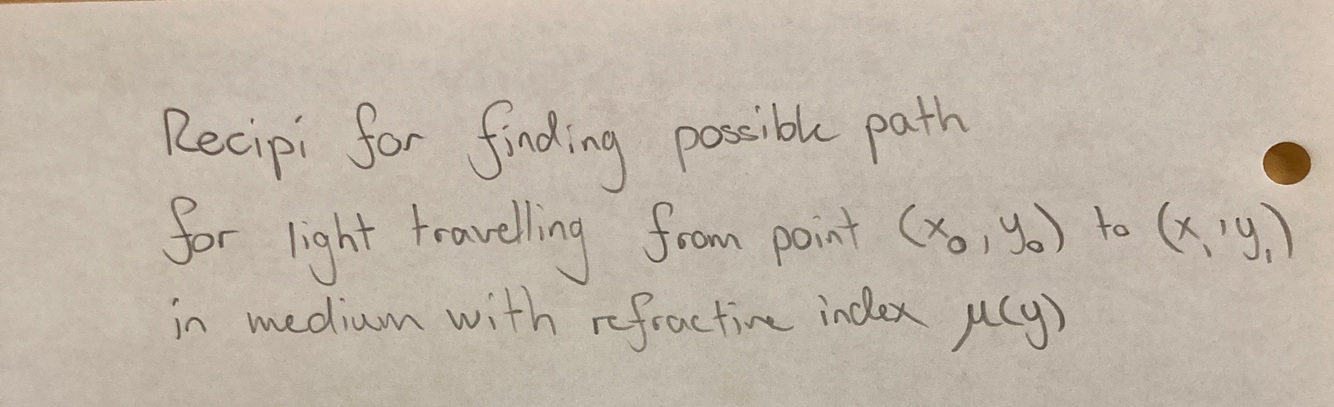 Recipi for finding possible path
for light travelling from point (x₀, y₀) to (x₁, y₁)
in medium with refractive index μ(y)